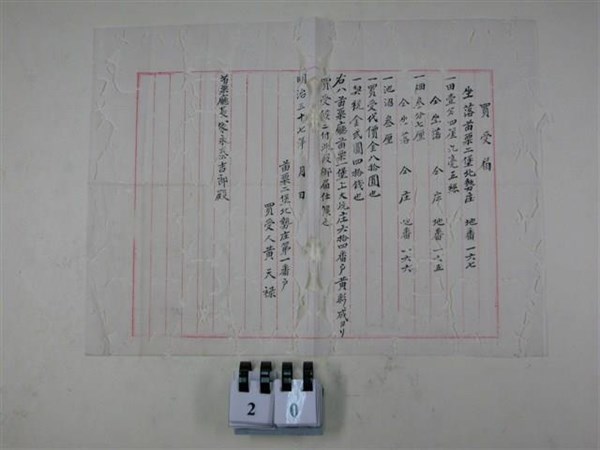 買受届
坐落苗栗二堡北勢庄 地番一六七
一田壹分四厘九毫五絲
仝坐落 仝庄 地番一六五
一畑叁分七厘
仝坐落 仝庄 地番一六六
一池沼叁厘
一買受代價金八拾圓也
一契税金貳圓四拾錢也
右ハ苗栗廳苗栗一堡上大坑庄六拾四番戶黄彩成ヨリ
買受候ニ付此段御届仕候也
明治三十七年 月 日
苗栗二堡北勢庄第一番戶
買受人黄天禄
苗栗廳長家永泰吉郎殿
2 0